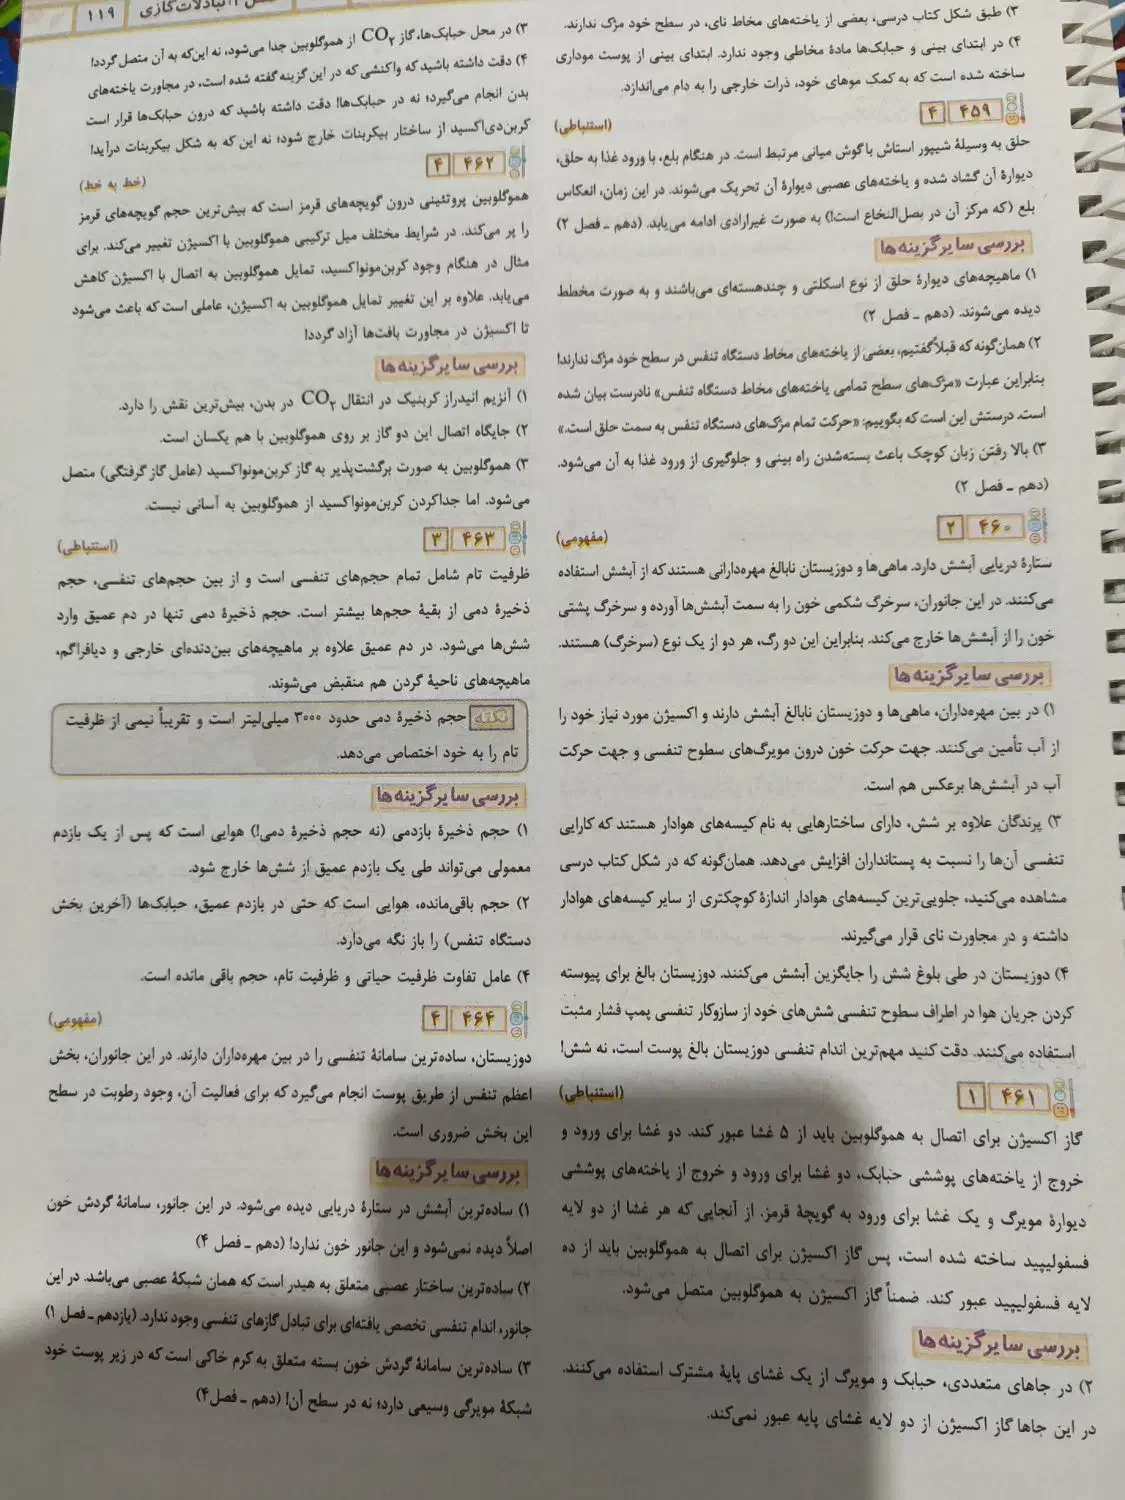 ۱۱۹
تبادلات گازی
۳) طبق شکل کتاب درسی، بعضی از یاخته‌های مخاط نای، در سطح خود مژک ندارند.
۴) در ابتدای بینی و حبابک‌ها مادهٔ مخاطی وجود ندارد. ابتدای بینی از پوست موداری
ساخته شده است که به کمک موهای خود، ذرات خارجی را به دام می‌اندازد.
۴۵۹ ۴ (استنباطی)
حلق به وسیلهٔ شیپور استاش با گوش میانی مرتبط است. در هنگام بلع، با ورود غذا به حلق،
دیوارهٔ آن گشاد شده و یاخته‌های عصبی دیوارهٔ آن تحریک می‌شوند. در این زمان، انعکاس
بلع (که مرکز آن در بصل‌النخاع است!) به صورت غیرارادی ادامه می‌یابد. (دهم ـ فصل ۲)
بررسی سایر گزینه‌ها
۱) ماهیچه‌های دیوارهٔ حلق از نوع اسکلتی و چندهسته‌ای می‌باشند و به صورت مخطط
دیده می‌شوند. (دهم ـ فصل ۲)
۲) همان‌گونه که قبلاً گفتیم، بعضی از یاخته‌های مخاط دستگاه تنفس در سطح خود مژک ندارند!
بنابراین عبارت «مژک‌های سطح تمامی یاخته‌های مخاط دستگاه تنفس» نادرست بیان شده
است. درستش این است که بگوییم: «حرکت تمام مژک‌های دستگاه تنفس به سمت حلق است.»
۳) بالا رفتن زبان کوچک باعث بسته‌شدن راه بینی و جلوگیری از ورود غذا به آن می‌شود.
(دهم ـ فصل ۲)
۴۶۰ ۲ (مفهومی)
ستارهٔ دریایی آبشش دارد. ماهی‌ها و دوزیستان نابالغ مهره‌دارانی هستند که از آبشش استفاده
می‌کنند. در این جانوران، سرخرگ شکمی خون را به سمت آبشش‌ها آورده و سرخرگ پشتی
خون را از آبشش‌ها خارج می‌کند. بنابراین این دو رگ، هر دو از یک نوع (سرخرگ) هستند.
بررسی سایر گزینه‌ها
۱) در بین مهره‌داران، ماهی‌ها و دوزیستان نابالغ آبشش دارند و اکسیژن مورد نیاز خود را
از آب تأمین می‌کنند. جهت حرکت خون درون مویرگ‌های سطوح تنفسی و جهت حرکت
آب در آبشش‌ها برعکس هم است.
۳) پرندگان علاوه بر شش، دارای ساختارهایی به نام کیسه‌های هوادار هستند که کارایی
تنفسی آن‌ها را نسبت به پستانداران افزایش می‌دهد. همان‌گونه که در شکل کتاب درسی
مشاهده می‌کنید، جلویی‌ترین کیسه‌های هوادار اندازهٔ کوچکتری از سایر کیسه‌های هوادار
داشته و در مجاورت نای قرار می‌گیرند.
۴) دوزیستان در طی بلوغ شش را جایگزین آبشش می‌کنند. دوزیستان بالغ برای پیوسته
کردن جریان هوا در اطراف سطوح تنفسی شش‌های خود از سازوکار تنفسی پمپ فشار مثبت
استفاده می‌کنند. دقت کنید مهم‌ترین اندام تنفسی دوزیستان بالغ پوست است، نه شش!
۴۶۱ ۱ (استنباطی)
گاز اکسیژن برای اتصال به هموگلوبین باید از ۵ غشا عبور کند. دو غشا برای ورود و
خروج از یاخته‌های پوششی حبابک، دو غشا برای ورود و خروج از یاخته‌های پوششی
دیوارهٔ مویرگ و یک غشا برای ورود به گویچهٔ قرمز. از آنجایی که هر غشا از دو لایه
فسفولیپید ساخته شده است، پس گاز اکسیژن برای اتصال به هموگلوبین باید از ده
لایه فسفولیپید عبور کند. ضمناً گاز اکسیژن به هموگلوبین متصل می‌شود.
بررسی سایر گزینه‌ها
۲) در جاهای متعددی، حبابک و مویرگ از یک غشای پایهٔ مشترک استفاده می‌کنند.
در این جاها گاز اکسیژن از دو لایه غشای پایه عبور نمی‌کند.
۳) در محل حبابک‌ها، گاز CO۲ از هموگلوبین جدا می‌شود، نه این‌که به آن متصل گردد!
۴) دقت داشته باشید که واکنشی که در این گزینه گفته شده است، در مجاورت یاخته‌های
بدن انجام می‌گیرد؛ نه در حبابک‌ها! دقت داشته باشید که درون حبابک‌ها قرار است
کربن‌دی‌اکسید از ساختار بیکربنات خارج شود؛ نه این که به شکل بیکربنات درآید!
۴۶۲ ۴ (خط به خط)
هموگلوبین پروتئینی درون گویچه‌های قرمز است که بیش‌ترین حجم گویچه‌های قرمز
را پر می‌کند. در شرایط مختلف میل ترکیبی هموگلوبین با اکسیژن تغییر می‌کند. برای
مثال در هنگام وجود کربن‌مونواکسید، تمایل هموگلوبین به اتصال با اکسیژن کاهش
می‌یابد. علاوه بر این تغییر تمایل هموگلوبین به اکسیژن، عاملی است که باعث می‌شود
تا اکسیژن در مجاورت بافت‌ها آزاد گردد!
بررسی سایر گزینه‌ها
۱) آنزیم انیدراز کربنیک در انتقال CO۲ در بدن، بیش‌ترین نقش را دارد.
۲) جایگاه اتصال این دو گاز بر روی هموگلوبین با هم یکسان است.
۳) هموگلوبین به صورت برگشت‌پذیر به گاز کربن‌مونواکسید (عامل گاز گرفتگی) متصل
می‌شود. اما جداکردن کربن‌مونواکسید از هموگلوبین به آسانی نیست.
۴۶۳ ۳ (استنباطی)
ظرفیت تام شامل تمام حجم‌های تنفسی است و از بین حجم‌های تنفسی، حجم
ذخیرهٔ دمی از بقیهٔ حجم‌ها بیشتر است. حجم ذخیرهٔ دمی تنها در دم عمیق وارد
شش‌ها می‌شود. در دم عمیق علاوه بر ماهیچه‌های بین‌دنده‌ای خارجی و دیافراگم،
ماهیچه‌های ناحیهٔ گردن هم منقبض می‌شوند.
نکته حجم ذخیرهٔ دمی حدود ۳۰۰۰ میلی‌لیتر است و تقریباً نیمی از ظرفیت
تام را به خود اختصاص می‌دهد.
بررسی سایر گزینه‌ها
۱) حجم ذخیرهٔ بازدمی (نه حجم ذخیرهٔ دمی!) هوایی است که پس از یک بازدم
معمولی می‌تواند طی یک بازدم عمیق از شش‌ها خارج شود.
۲) حجم باقی‌مانده، هوایی است که حتی در بازدم عمیق، حبابک‌ها (آخرین بخش
دستگاه تنفس) را باز نگه می‌دارد.
۴) عامل تفاوت ظرفیت حیاتی و ظرفیت تام، حجم باقی مانده است.
۴۶۴ ۴ (مفهومی)
دوزیستان، ساده‌ترین سامانهٔ تنفسی را در بین مهره‌داران دارند. در این جانوران، بخش
اعظم تنفس از طریق پوست انجام می‌گیرد که برای فعالیت آن، وجود رطوبت در سطح
این بخش ضروری است.
بررسی سایر گزینه‌ها
۱) ساده‌ترین آبشش در ستارهٔ دریایی دیده می‌شود. در این جانور، سامانهٔ گردش خون
اصلاً دیده نمی‌شود و این جانور خون ندارد! (دهم ـ فصل ۴)
۲) ساده‌ترین ساختار عصبی متعلق به هیدر است که همان شبکهٔ عصبی می‌باشد. در این
جانور، اندام تنفسی تخصص یافته‌ای برای تبادل گازهای تنفسی وجود ندارد. (یازدهم ـ فصل ۱)
۳) ساده‌ترین سامانهٔ گردش خون بسته متعلق به کرم خاکی است که در زیر پوست خود
شبکهٔ مویرگی وسیعی دارد؛ نه در سطح آن! (دهم ـ فصل ۴)